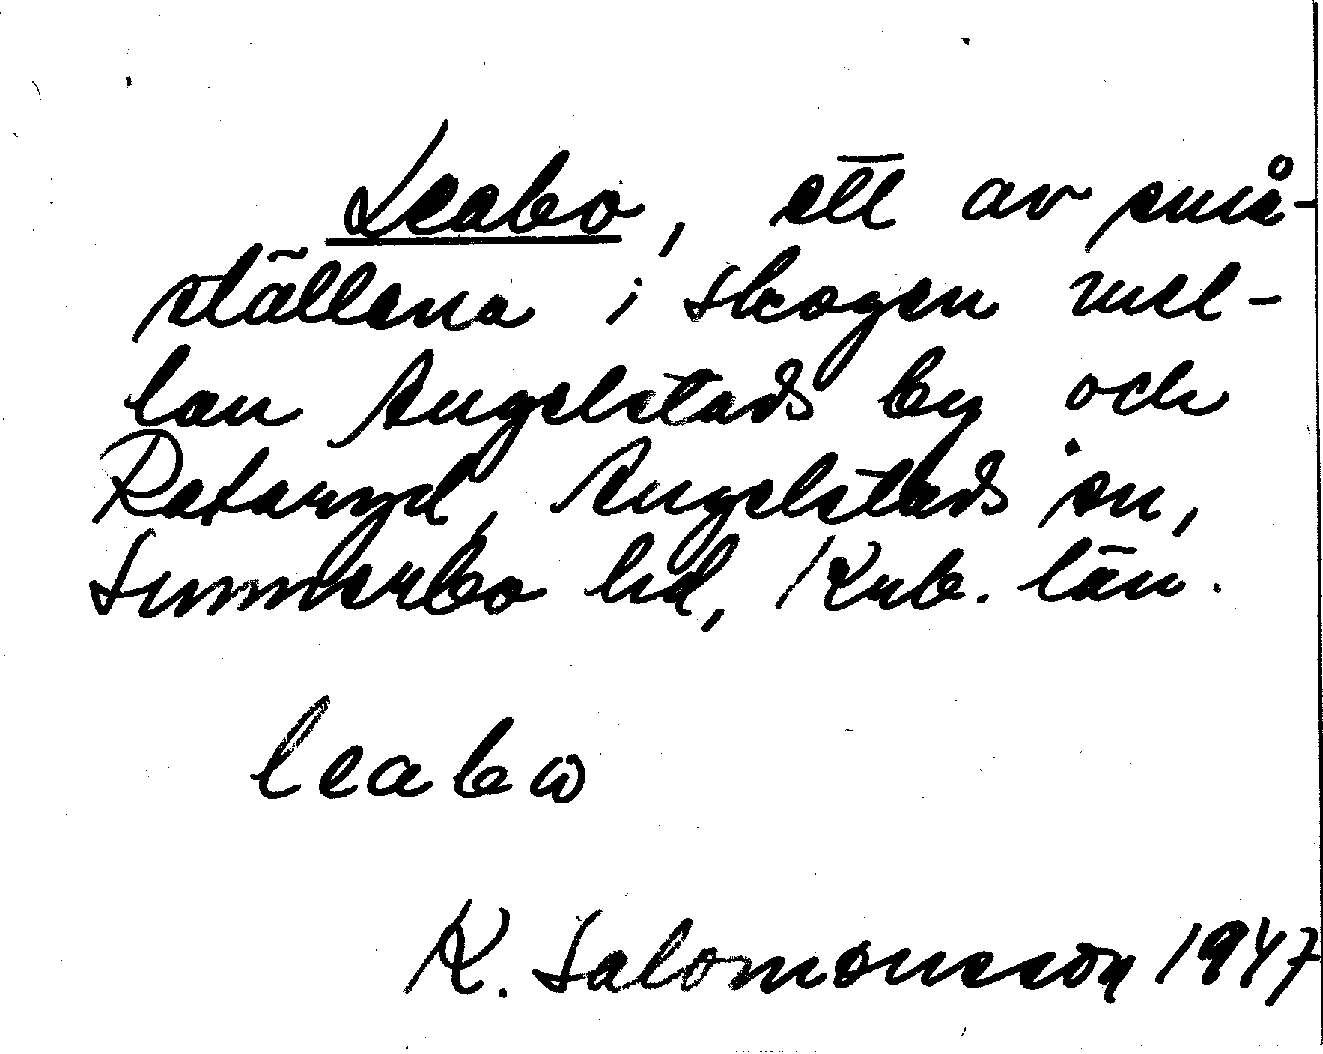 Leabo, ett av små-
ställena i skogen mel-
lan Angelstads by och
Retaryd, Angelstads sn,
Sunnerbo hd, Krb. län.
leabω
K. Salomonsson 1947